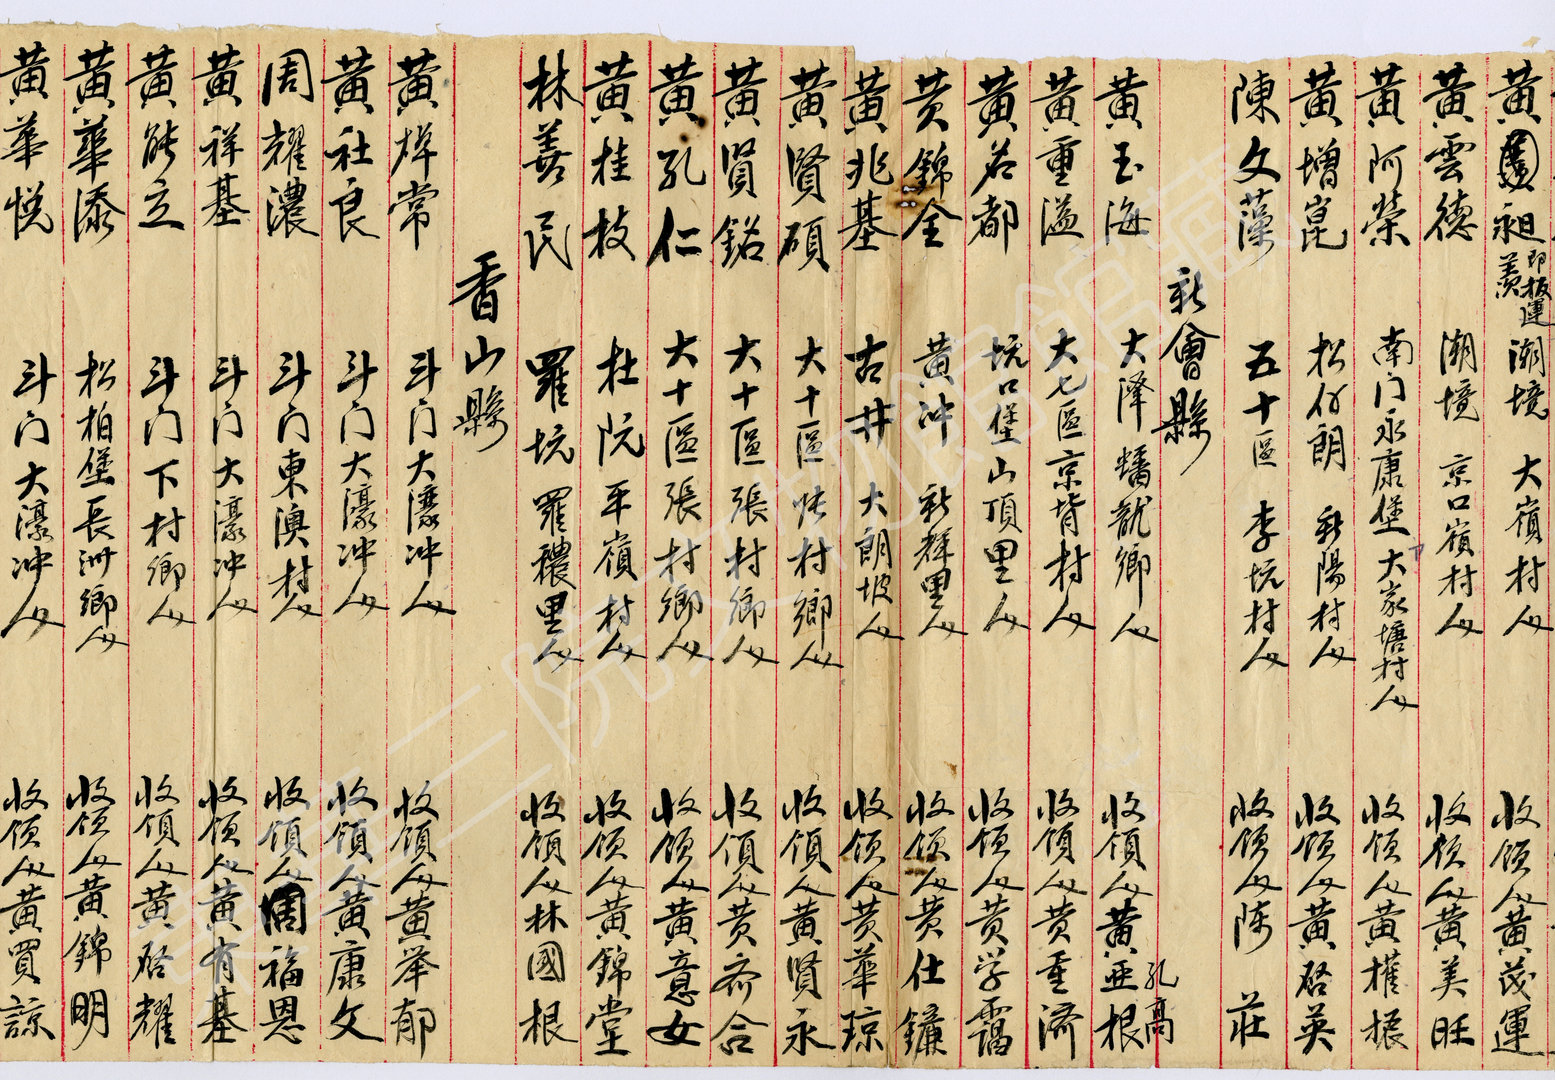 黃永𣆳 即板運羨 潮境 大嶺村人 收領人黃茂運
黃雲德 潮境 京口嶺村人 收領人黃美旺
黃阿榮 南门永康堡大家塘村人 收領人黃權振
黃增崑 松仔朗 新陽村人 收領人黃啓英
陳文藻 五十區 李坑村人 收領人陈莊
新會縣
黃玉海 大澤 蟠龍鄉人 收領人黃亚根 孔高
黃重溢 大七區京背村人 收領人黃重濟
黃君都 坑口堡山頂里人 收領人黃学靄
黃錦全 黃冲 新群里人 收領人黃仕鏞
黃兆基 古井 大朗坡人 收領人黃華琼
黃賢碩 大十區张村鄉人 收領人黃賢永
黃賢銘 大十區張村鄉人 收領人黃齐合
黃孔仁 大十區張村鄉人 收領人黃意女
黃桂枝 杜阮平嶺村人 收領人黃錦堂
林善民 羅坑羅禮里人 收領人林國根
香山縣
黃焯常 斗门大濠冲人 收領人黃举郁
黃社良 斗门大濠冲人 收領人黃康文
周耀濃 斗门東澳村人 收領人周福恩
黃祥基 斗门大濠冲人 收領人黃有基
黃能立 斗门下村鄉人 收領人黃啓耀
黃華添 松柏堡長洲鄉人 收領人黃錦明
黃華悦 斗门大濠冲人 收領人黃買諒
東華三院文物館館藏